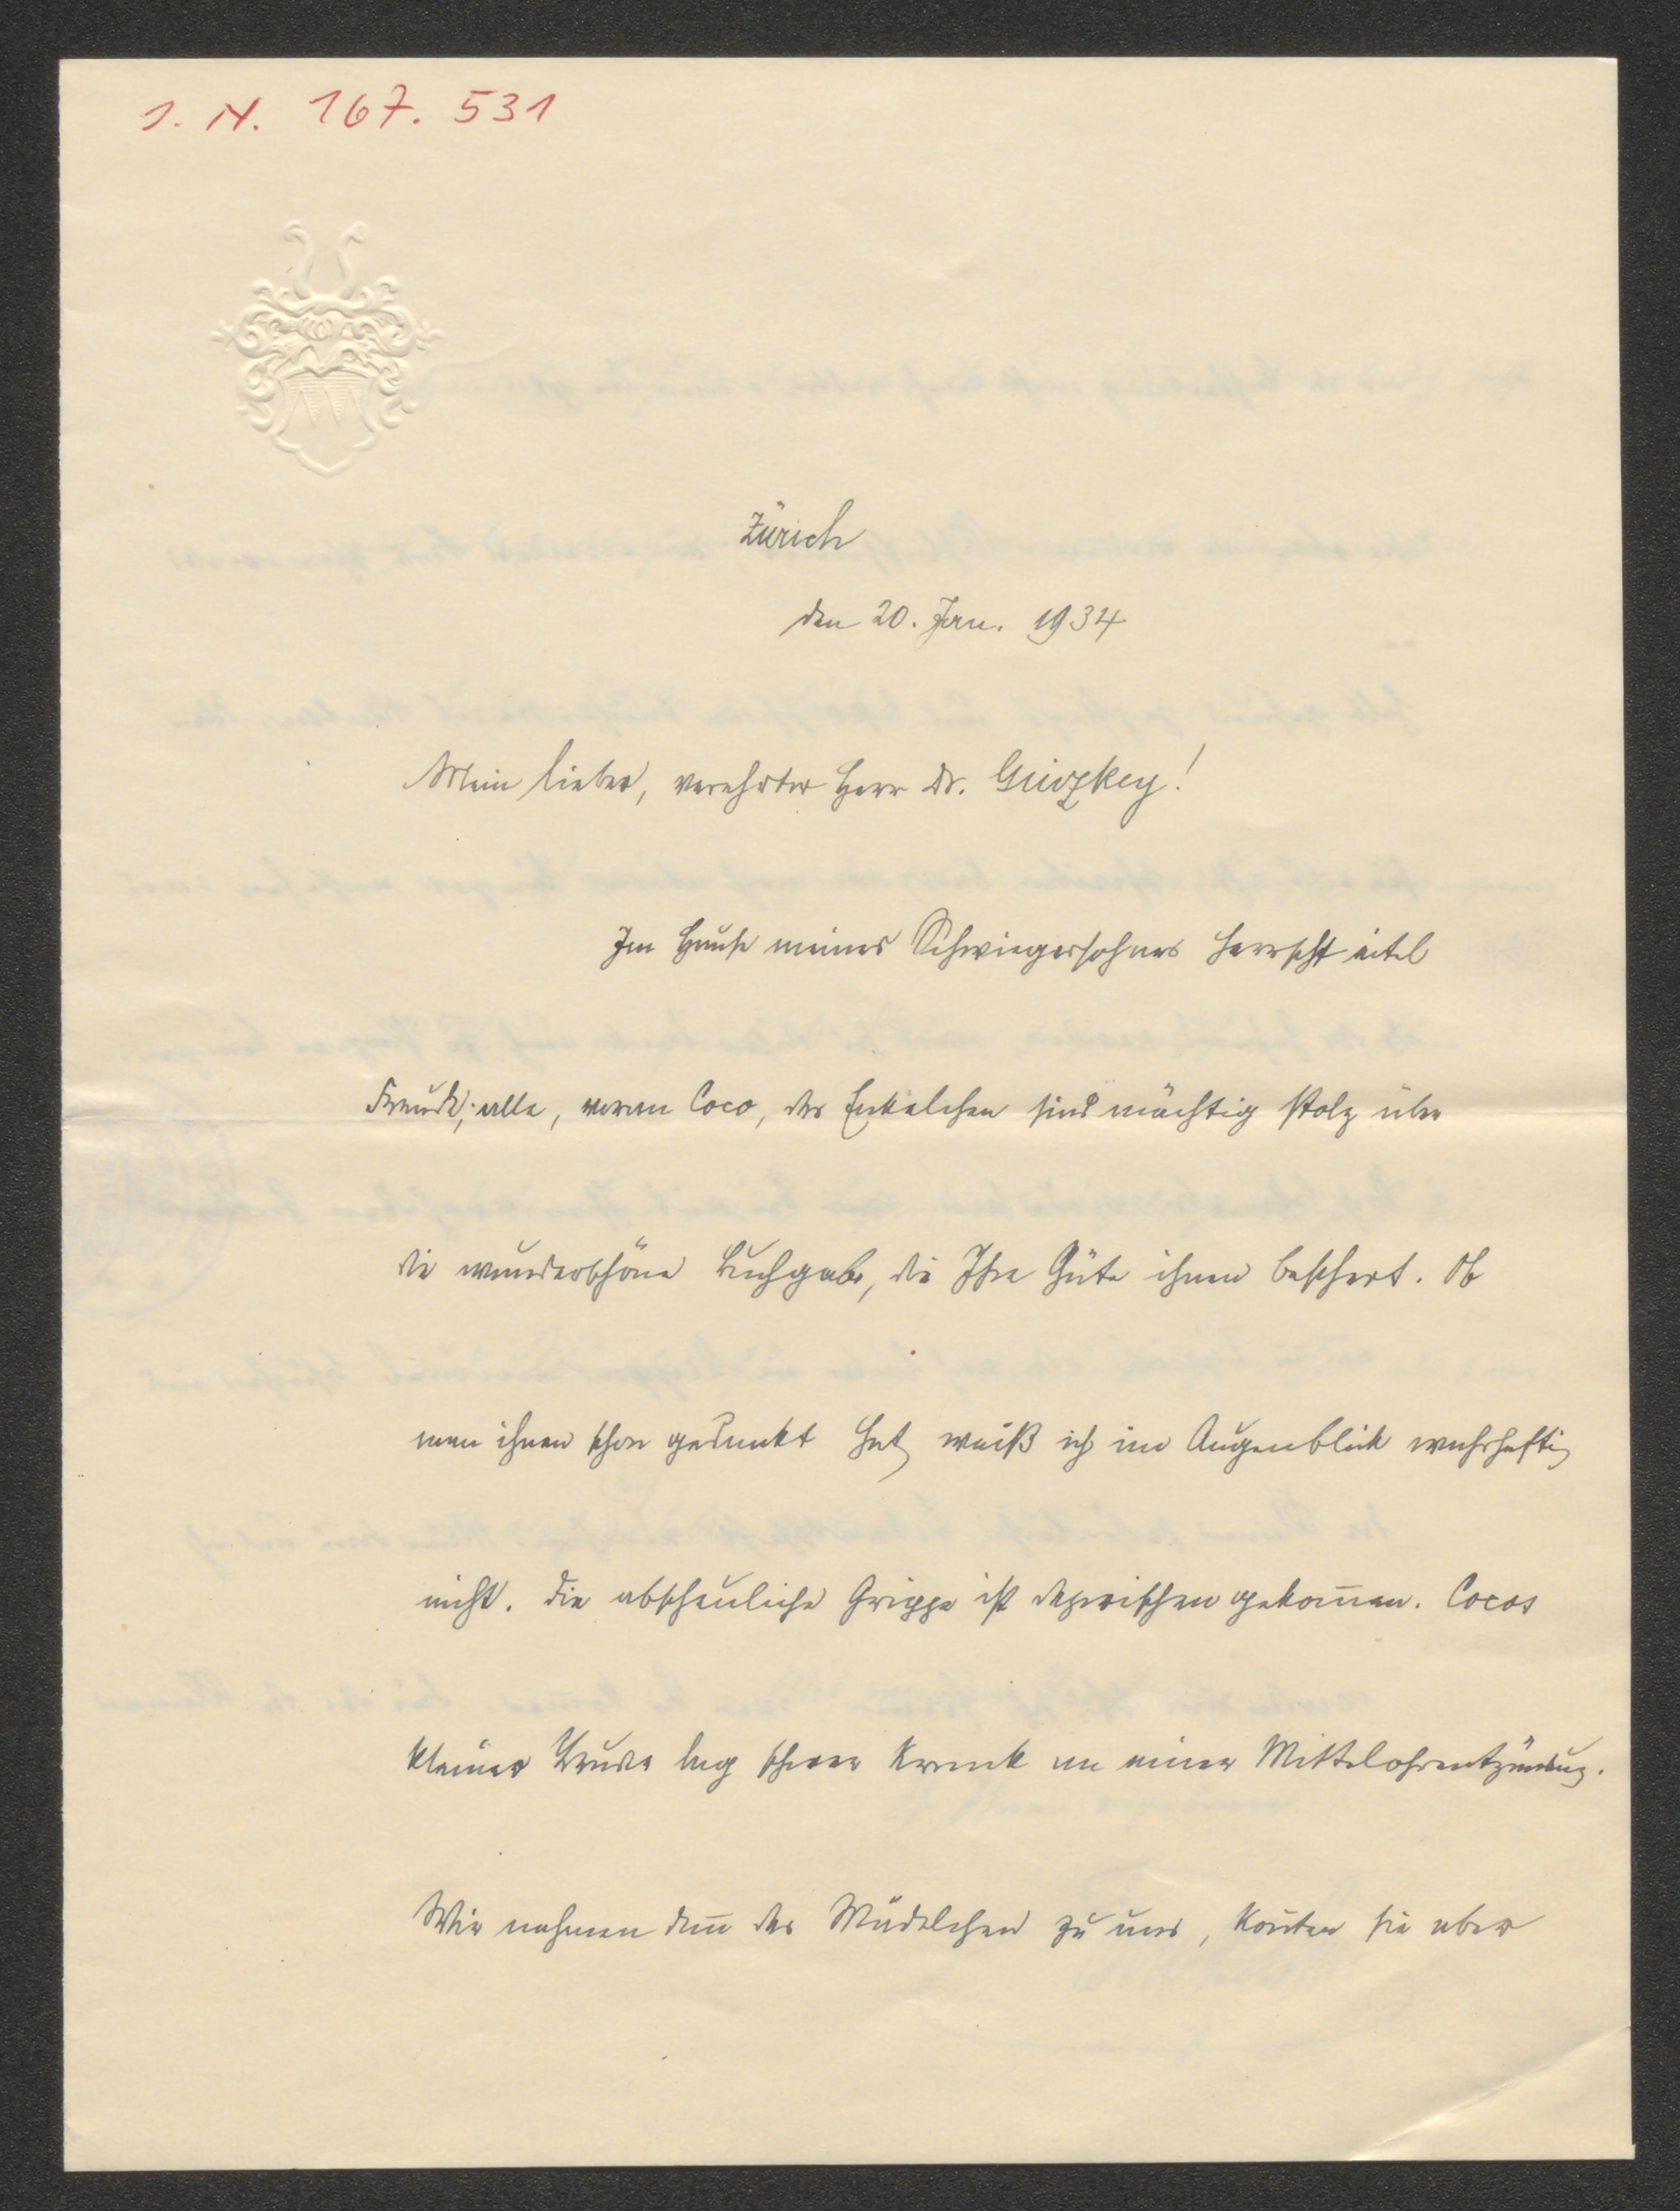 I. N. 167. 531
Zürich
den 20. Jan. 1934
Mein lieber, verehrter Herr Dr.
Im Hause meines Schwiegersohnes herrscht eitel
Freude; alle, voran Coco, das Enkelchen sind mächtig stolz über
die wunderschöne Buchgabe, die Ihre Güte ihnen beschert. Ob
man ihnen schon gedankt hat, weiß ich im Augenblick wahrhaftig
nicht. Die abscheuliche Grippe ist dazwischen gekom̄en. Cocos
kleiner Bruder lag schwer krank an einer Mittelohrentzündung.
Wir nahmen dan̄ das Mädelchen zu uns, kon̄ten sie aber